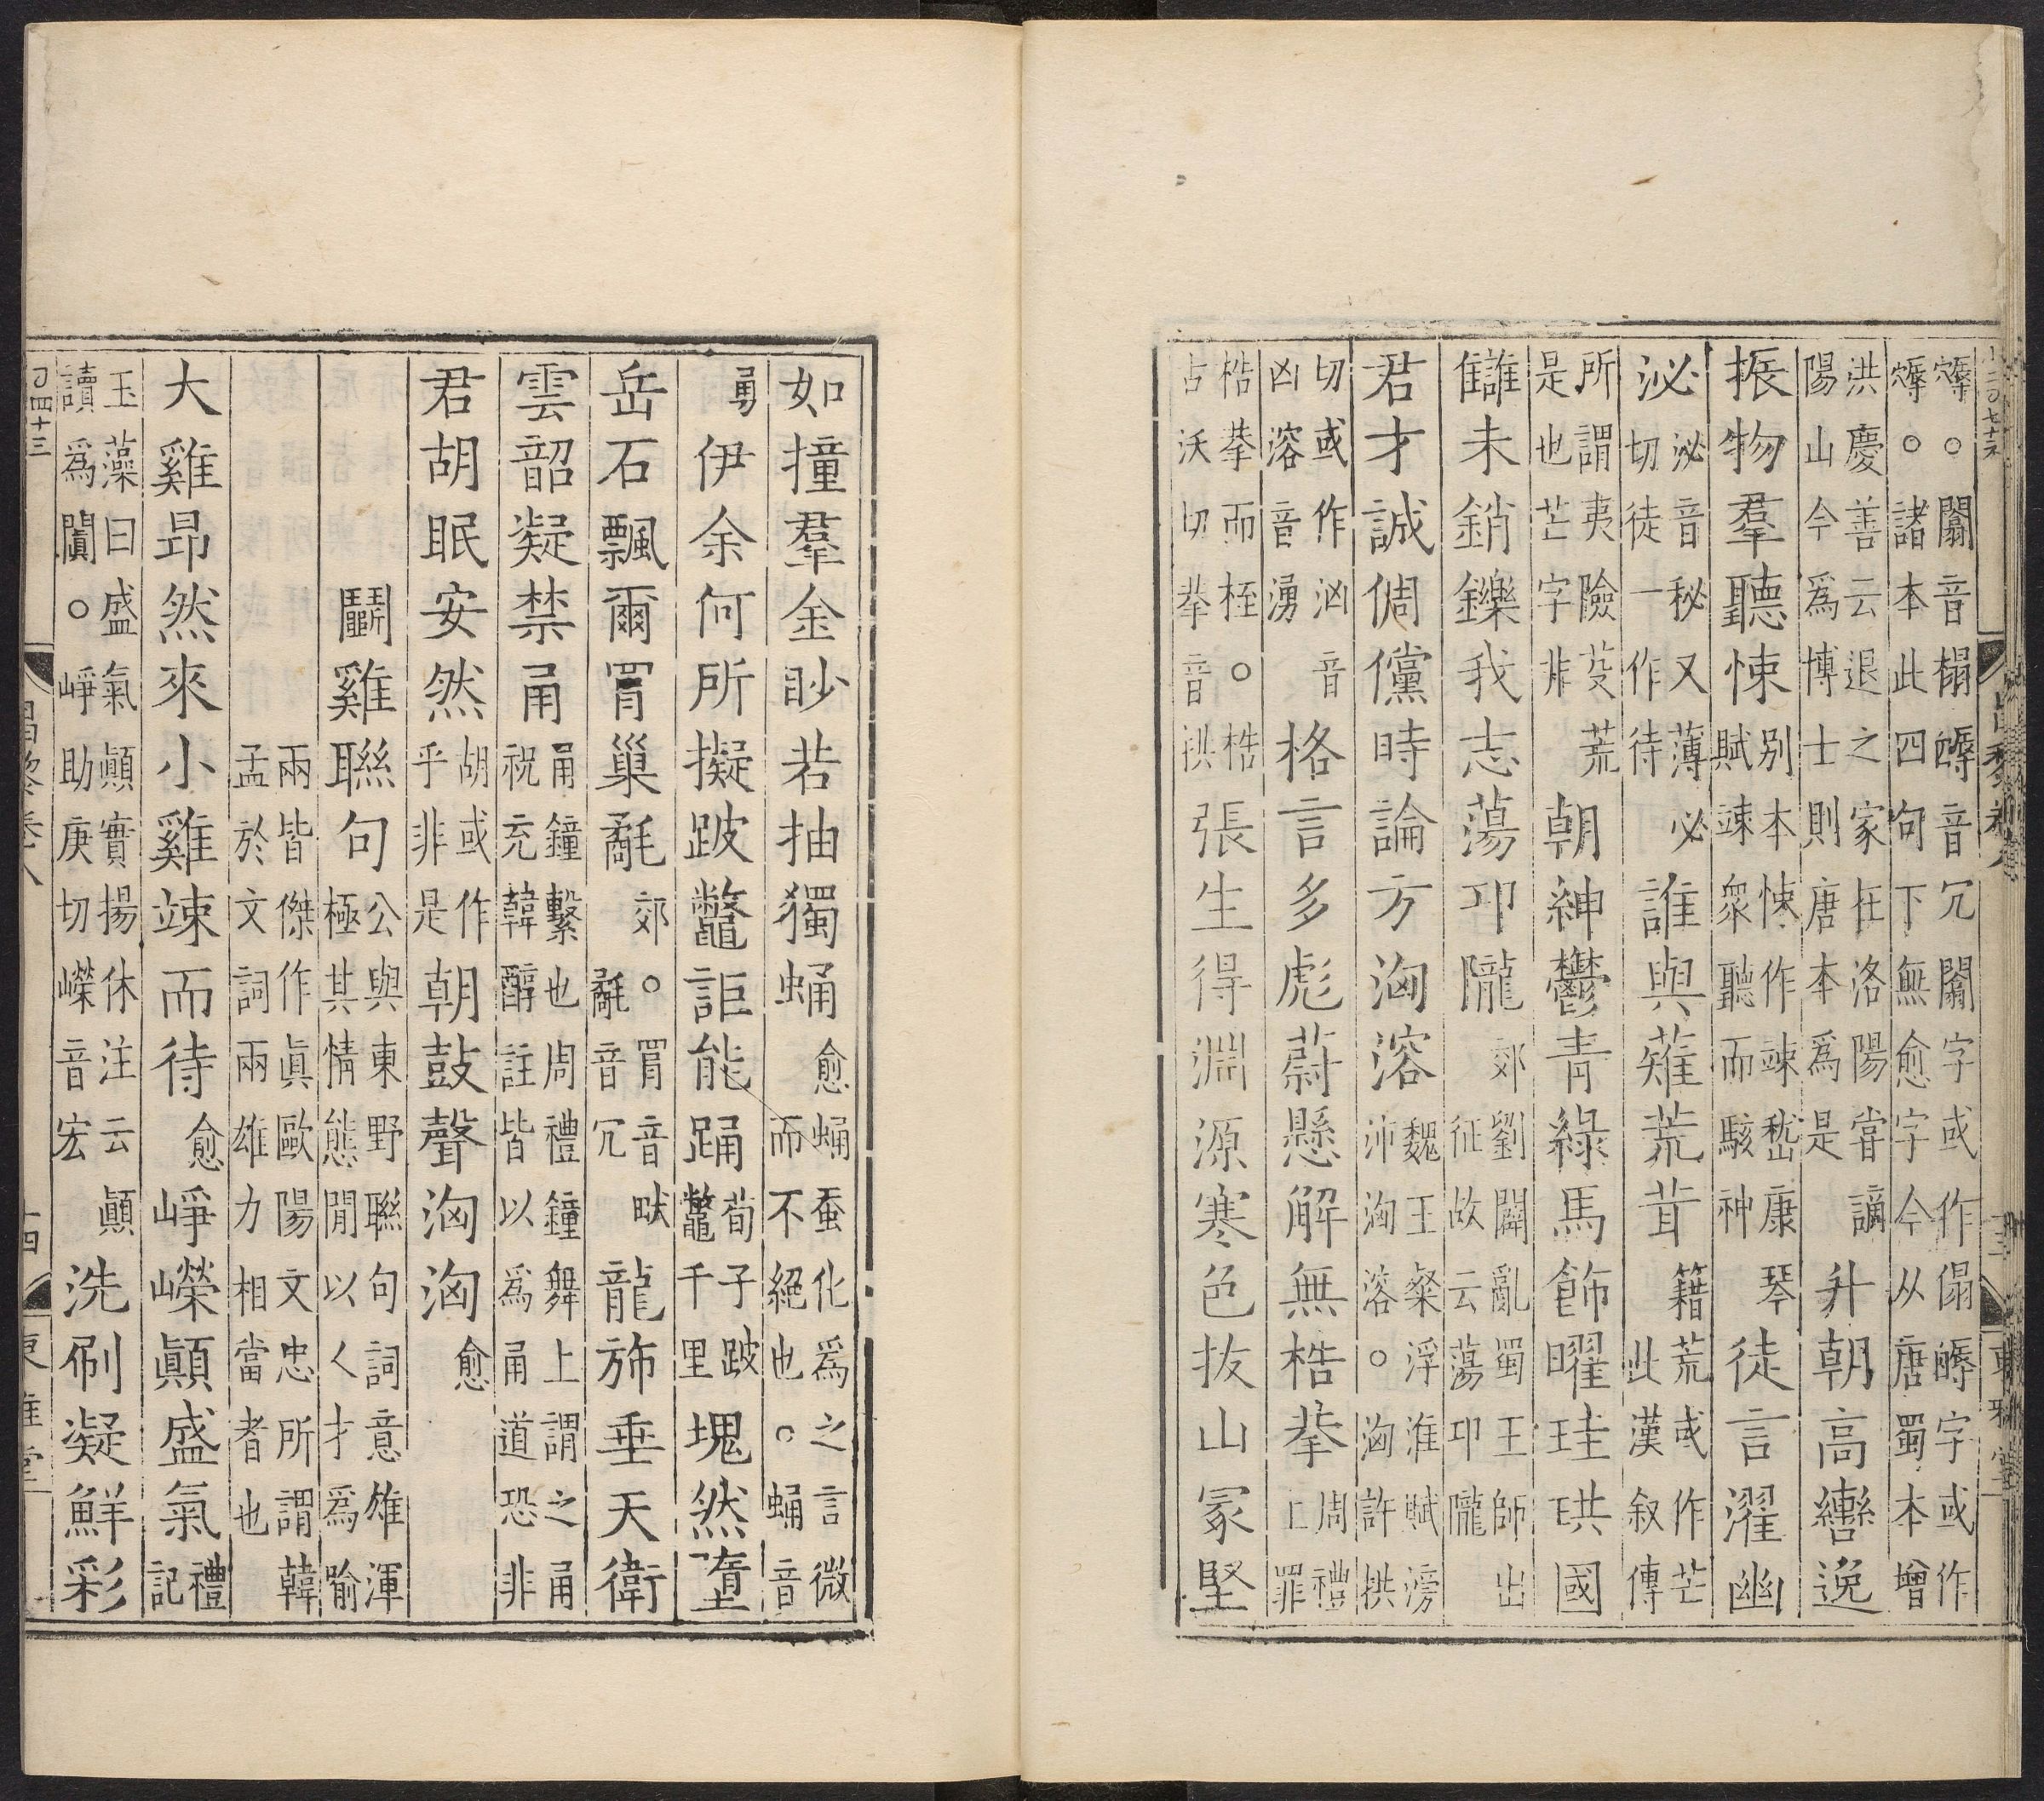 。闟音榻音冗闟字或作傝字或作
。諸本此四句下無愈字今从唐蜀本增
洪慶善云退之家在洛陽嘗謫
陽山今爲博士則唐本爲是升朝高轡逸
振物羣聽悚別本悚作竦嵇康琴
賦竦衆聽而駭神徒言濯幽
泌泌音秘又薄必
切徒一作待誰與薙荒茸籍荒或作芒
此漢叙傳
所謂夷險芟荒
是也芒字非朝紳鬱青綠馬飾曜珪珙國
讎未銷鑠我志蕩卭隴郊劉闢亂蜀王師出
征故云蕩卭隴
君才誠倜儻時論方洶溶魏王粲浮淮賦滂
沛洶溶。洶許拱
切或作汹音
凶溶音湧格言多彪蔚懸解無梏拲周禮
上罪
梏拲而桎。梏
古沃切拲音拱張生得淵源寒色拔山冢堅
如撞羣金眇若抽獨蛹愈蛹蚕化爲之言微
而不絕也。蛹音
勇伊余何所擬跛鼈詎能踊荀子跛
鼈千里塊然墮
岳石飄爾罥巢氄郊。罥音畎
氄音冗龍斾垂天衛
雲韶凝禁甬甬鐘繫也周禮鐘舞上謂之甬
祝充韓醇註皆以爲甬道恐非
君胡眠安然胡或作
乎非是朝鼓聲洶洶愈
鬭雞聯句公與東野聯句詞意雄渾
極其情態閒以人才爲喻
兩皆傑作眞歐陽文忠所謂韓
孟於文詞兩雄力相當者也
大雞昻然來小雞竦而待愈崢嶸顛盛氣禮
記
玉藻曰盛氣顚實揚休注云顚
讀爲闐。崢助庚切嶸音宏洗刷凝鮮彩
昌黎卷八
十四
東雅堂